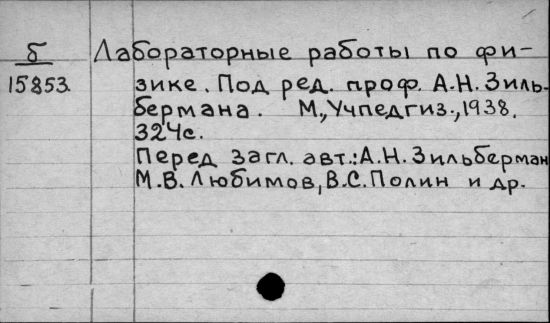 Б Лабораторные работы по фи-
15853. зике. Под ред. проф. А.Н. Зиль-
бермана. М., Учпедгиз., 1938.
324с.
Перед загл. авт.: А.Н. Зильберман
М.В. Любимов, В.С. Полин и др.